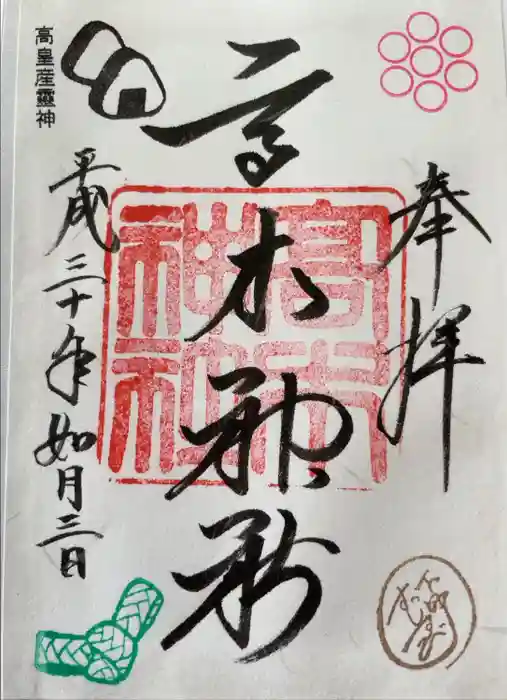 奉拝
高木神社
高木神社
平成三十年如月三日
高皇産靈神